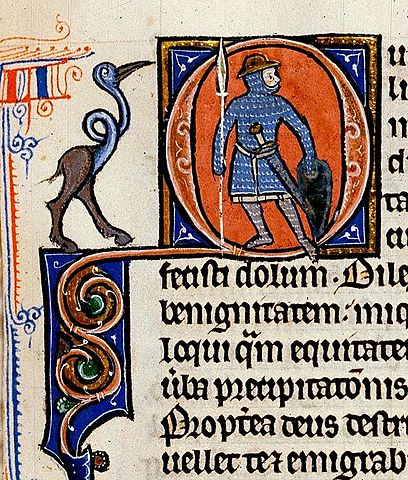 Qu
li
d
ta
cu
fecisti dolum. Dile
benignitatem: iniq
loqui q̄m equitate
ūba precipitatōnis
Propt̄ea deus destru
uellet te ⁊ emigrab